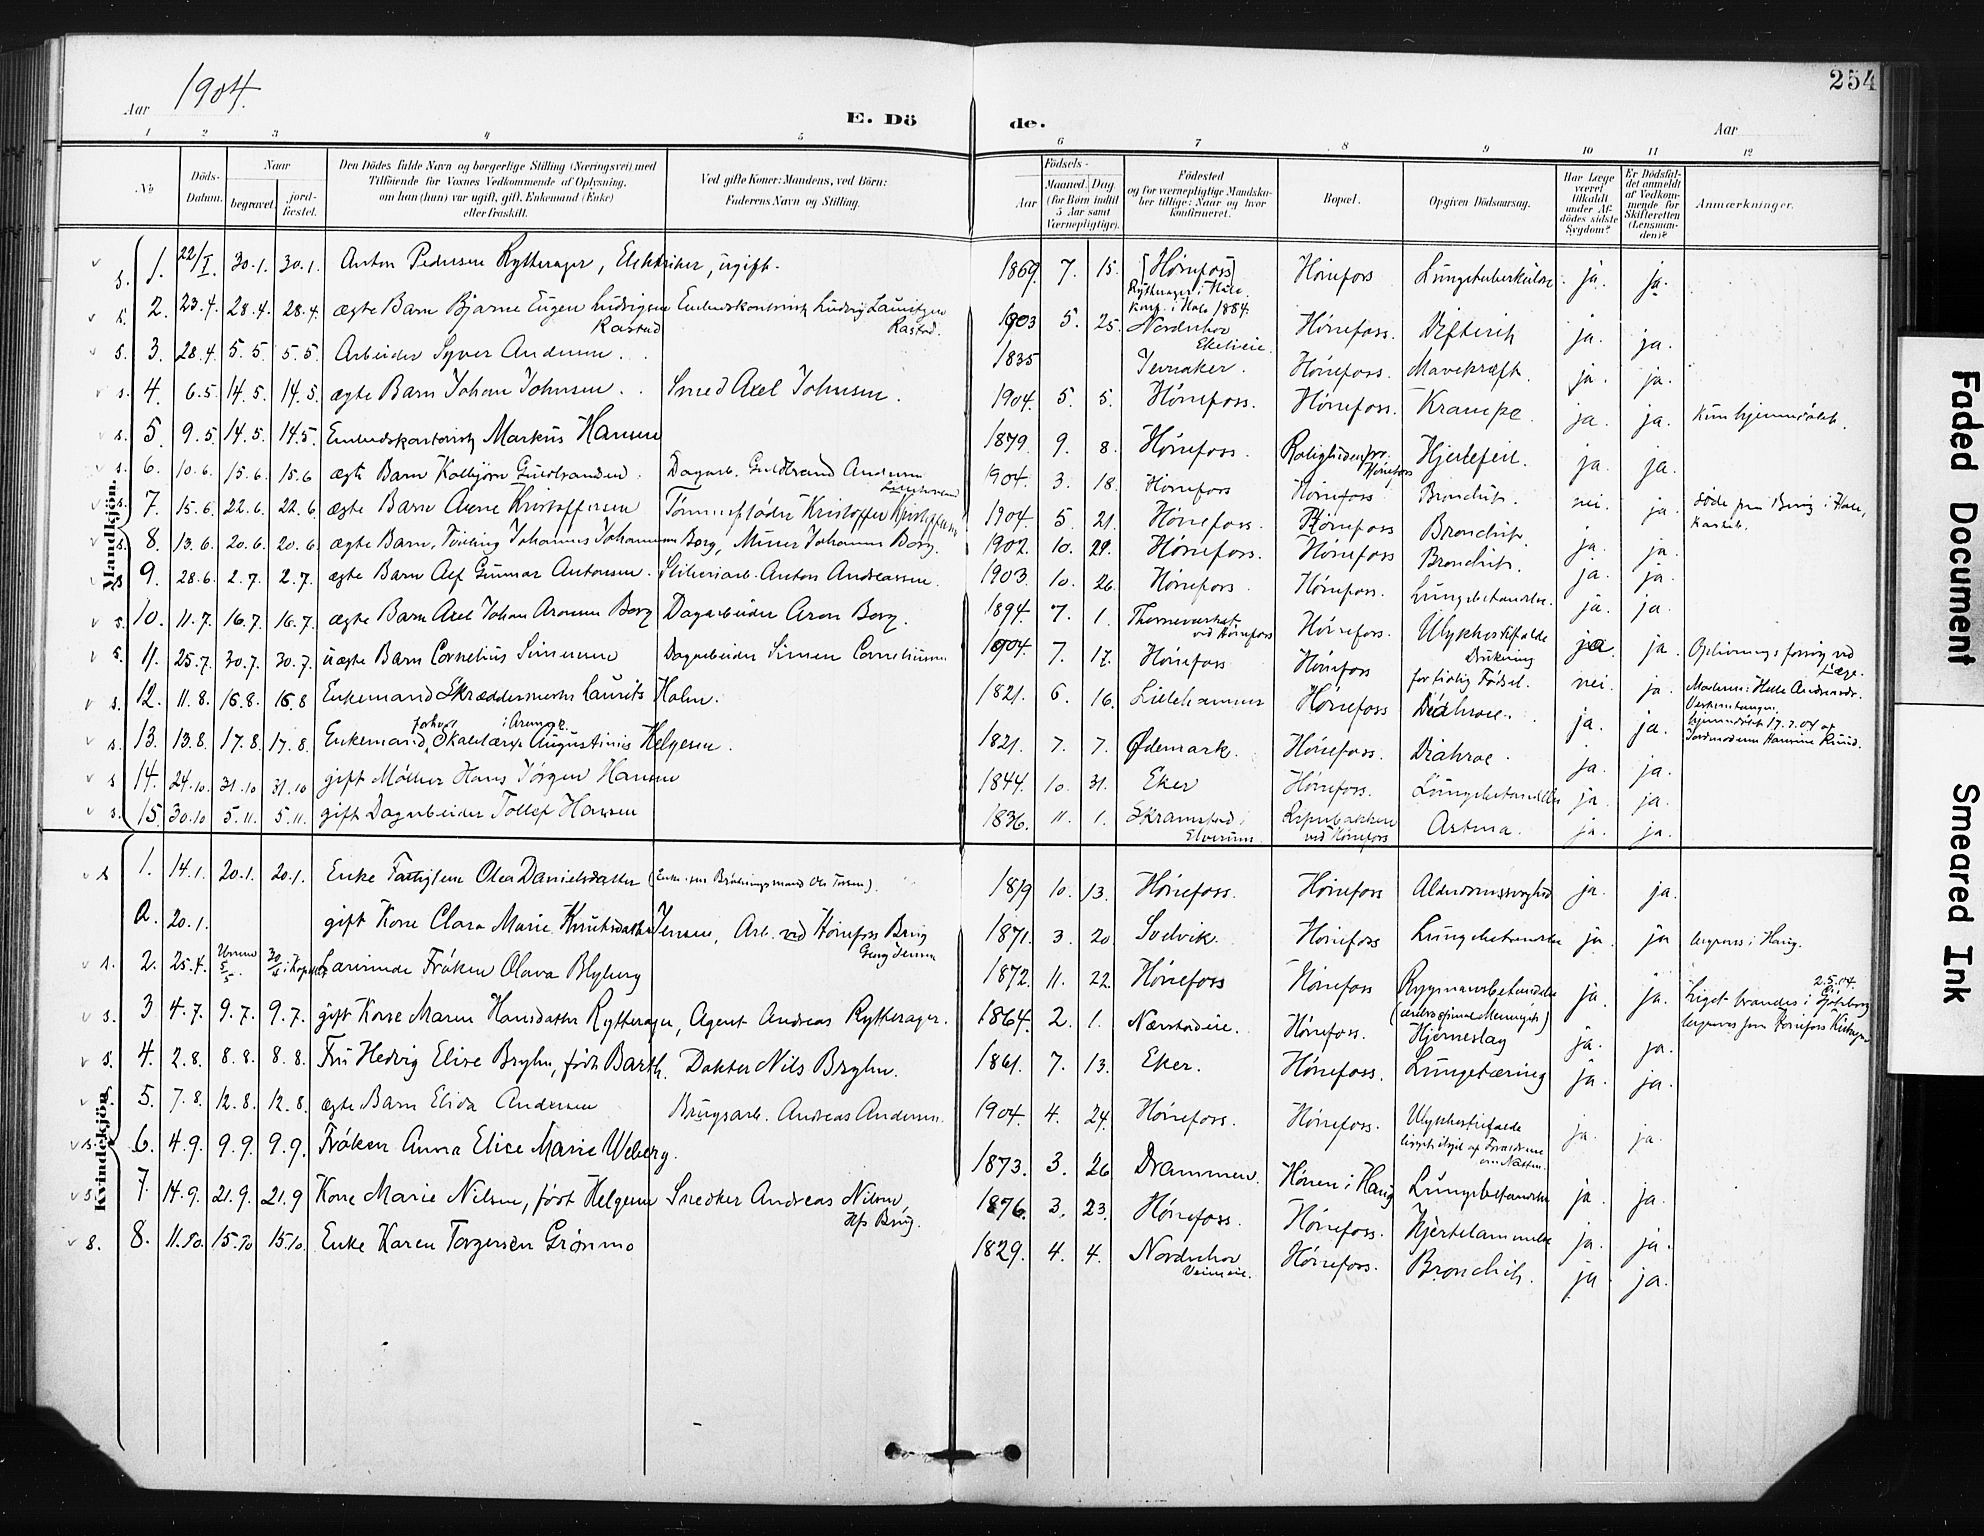 1904.
254
Aar
E. Dö
de.
Aar
1 2 3 4 5 6 7 8 9 10 11 12
No
Döds-Datum.
Naar
begravet.
jord-fæstet.
Den Dödes fulde Navn og borgerlige Stilling (Næringsvei) med
Tilföiende for Voxnes Vedkommende af Oplysning,
om han (hun) var ugift, gift, Enkemand (Enke)
eller fraskilt.
Ved gifte Koner: Mandens, ved Börn:
Faderens Navn og Stilling.
Födsels-
Aar
Maaned. Dag.
(for Börn indtil
5 Aar samt
Værnepligtige).
Födested
og for værnepligtige Mandska-
ber tillige: Naar og hvor
konfirmeret.
Bopæl.
Opgiven Dödsaarsag.
Har Læge
været
tilkaldt
under Af-
dödes sidste
Sygdom?
Er Dödsfal-
det anmeldt
af Vedkom-
mende for
Skifteretten
(Lensman-
den)?
Anmærkninger.
Mandkjön.
s. 1. 22/I. 30.1. 30.1. Anton Pedersen Rytterager, Elektriker, ugift. 1869 7. 15. [Hønefoss] Hønefoss Lungetuberkulose ja. ja.
Rytterager i Hole.
Konf. i Hole 1884.
s. 2. 23.4. 28.4. 28.4. ægte Barn Bjarne Eugen Ludvigsen Embedskontorist Ludvig Lauritzen 1903 5. 25. Norderhov Hønefoss. Difterit ja. ja.
Rastad Rastad. Ekelieie.
s. 3. 28.4. 5.5. 5.5. Arbeider Syver Andersen. 1835 Jevnaker. Hønefoss. Mavekræft. ja. ja.
s. 4. 6.5. 14.5. 14.5. ægte Barn Johan Johnsen. Smed Axel Johnsen. 1904. 5. 5. Hønefoss. Hønefoss. Krampe ja. ja. Kun hjemmedøbt.
s. 5. 9.5. 14.5. 14.5. Embedskontorist Markus Hansen 1879. 9. 8. Hønefoss. Roligheden pr. Hønefoss Hjertefeil. ja. ja.
s. 6. 10.6. 15.6. 15.6 ægte Barn Kolbjørn Guldbrandsen. Dagarb. Guldbrand Andersen 1904. 3. 18. Hønefoss Hønefoss Bronchit. nei. ja.
s. 7. 15.6. 22.6. 22.6. ægte Barn Arne Kristoffersen Tømmerfløder Kristoffer Kristoffersen 1904. 5 21. Hønefoss. Hønefoss Bronchit. ja. ja.
s. 8. 13.6. 20.6. 20.6. ægte Barn, Tvilling Johannes Johannesen Borg, Murer Johannes Borg. 1902. 10. 29. Hønefoss. Hønefoss Bronchit. ja. ja.
s. 9. 28.6. 2.7. 2.7. ægte Barn Alf Gunnar Antonsen. Sliberiarb. Anton Andreassen. 1903. 10. 26. Hønefoss Hønefoss. Lungebetændelse. ja. ja.
s. 10. 11.7. 16.7. 16.7. ægte Barn Axel Johan Aronsen Borg Dagarbeider Aron Borg. 1894. 7. 1. Hønefoss. Ulykkestilfælde ja. ja. Oplivningsforsøg ved Læge.
ved Hønefoss Drukning
s. 11. 25.7. 30.7. 30.7. uægte Barn Cornelius Simensen Dagarbeider Simen Corneliussen 1904. 7. 17. Hønefoss Hønefoss for tidlig Fødsel. nei. ja.
s. 12. 11.8. 16.8. 16.8 Enkemand Skræddermester Laurits Holm. 1821. 6. 16. Lillehammer Hønefoss Diáhroe. ja. ja.
forhen i Aremark.
s. 13. 13.8. 17.8. 17.8. Enkemand, Skolelærer Augustinus Helgesen. 1821. 7. 7. Ødemark. Hønefoss. Diáhroe. ja. ja.
s 14. 24.10. 31.10 31.10 gift Møller Hans Jørgen Hansen 1844. 10. 31. Eker Hønefoss. Lungebetændelse ja. ja.
s. 15. 30.10 5.11. 5.11. gift Dagarbeider Tollef Hansen 1836. 11. 1. Skramstad i Elverum. ved Hønefoss Astma. ja. ja.
Kvindekjön.
s 1. 14.1. 20.1. 20.1. Enke Olea Danielsdatter 1819 10. 13. Hønefoss. Hønefoss Alderdomssvaghed ja. ja.
a. 20.1. gift Kone Clara Marie Knutsdatter Jensen, Arb. ved Hønefoss Brug 1871. 3. 20. Hønefoss Lungebetændelse ja. ja begraves i Haug.
s. 2. 25.4. Frøken Olava Blyberg 1872. 11. 22. Hønefoss Hønefoss Rygmarvsbetændelse ja. ja. 2.5.04.
Liget brændes i Göteborg
s. 3 4.7. 9.7. 9.7. gift Kone Maren Hansdatter Rytterager, Agent Andreas Rytterager. 1864. 2. 1. Nærstadeie. Hønefoss. Hjerneslag ja. ja.
s. 4. 2.8. 8.8. 8.8. Fru Hedvig Elise Bryhn, født Barth. Doktor Nils Bryhn. 1861. 7. 13. Eker. Hønefoss. Lungetæring ja. ja.
5. 7.8. 12.8. 12.8. ægte Barn Elida Andersen Brugsarb. Andreas Andersen. 1904. 4. 24. Hønefoss. Hønefoss. Ulykkestilfælde ja. ja.
s. 6. 4.9. 9.9. 9.9. Frøken Anna Elise Marie Weberg. 1873. 3. 26 Drammen. Hønen i Haug Lungebetændelse ja. ja.
s. 7. 14.9. 21.9. 21.9 Kone Marie Nilsen, født Helgesen Snedker Andreas Nilsen, 1876. 3. 23. Hønefoss. Hønefoss. Hjertelammelse ja. ja.
Hfs Brug.
s. 8. 11.10. 15.10 15.10. Enke Karen Torgersen Grønmo 1829. 4. 4. Norderhov Hønefoss. Bronchit. ja. ja.
Faded Document
Smeared Ink